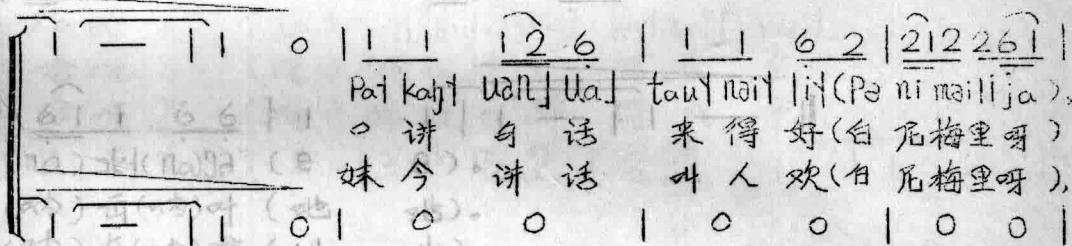 1 — 1 1 0 | 1 1 1 2 6 | 1 1 6 2 | 2 1 2 2 6 1 |
Pa˧ kaŋ˧ uən˩ ua˩ tau˧ nəi˧ li˧ (Pə ni məi li ja),
○ 讲 白 话 来 得 好 (白 尼梅里呀)
妹 今 讲 话 叫 人 欢 (白 尼梅里呀),
1 — 1 1 0 | 0 0 | 0 0 | 0 0 |